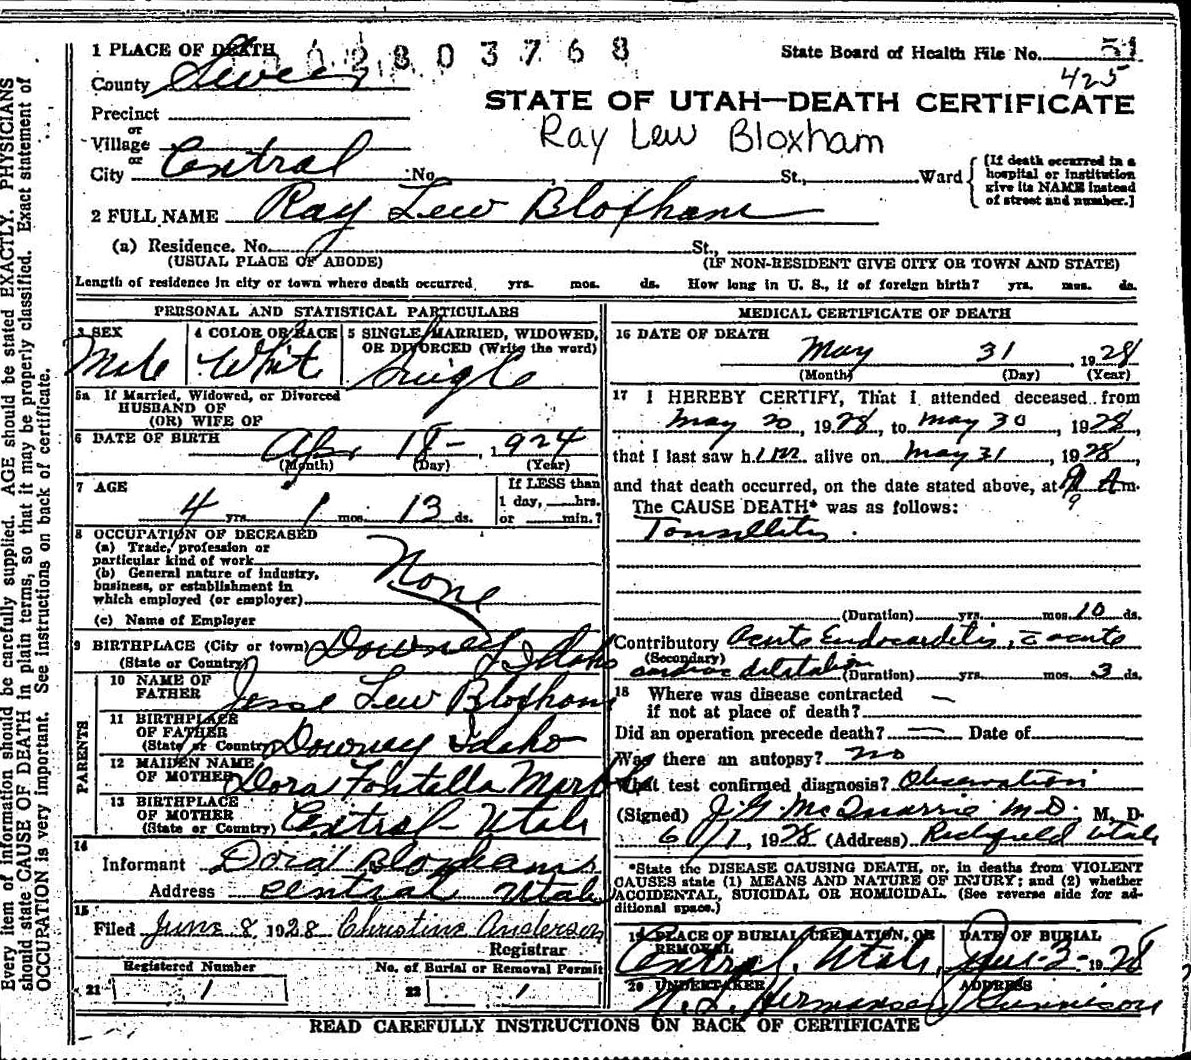 1 PLACE OF DEATH 02803768 State Board of Health File No. 51
County Sevier 425
STATE OF UTAH—DEATH CERTIFICATE
Precinct
or
Village
Ray Lew Bloxham
or
City Central No. , St., Ward {[If death occurred in a hospital or institution give its NAME instead of street and number.]
2 FULL NAME Ray Lew Bloxham
(a) Residence. No. St.,
(USUAL PLACE OF ABODE) (IF NON-RESIDENT GIVE CITY OR TOWN AND STATE)
Length of residence in city or town where death occurred yrs. mos. ds. How long in U. S., if of foreign birth? yrs. mos. ds.
PERSONAL AND STATISTICAL PARTICULARS
3 SEX
Male
4 COLOR OR RACE
White
5 SINGLE, MARRIED, WIDOWED,
OR DIVORCED (Write the word)
Single
5a If Married, Widowed, or Divorced
HUSBAND OF
(OR) WIFE OF
6 DATE OF BIRTH Apr 18 - , 1924
(Month) (Day) (Year)
7 AGE
4 yrs. 1 mos. 13 ds.
If LESS than
1 day, hrs.
or min.?
8 OCCUPATION OF DECEASED
(a) Trade, profession or
particular kind of work
(b) General nature of industry,
business, or establishment in
which employed (or employer)
None
(c) Name of Employer
9 BIRTHPLACE (City or town) Downey Idaho
(State or Country)
PARENTS
10 NAME OF
FATHER Jesse Lew Bloxham
11 BIRTHPLACE
OF FATHER
(State or Country) Downey Idaho
12 MAIDEN NAME
OF MOTHER Dora Fontella
13 BIRTHPLACE
OF MOTHER
(State or Country) Central - Utah
14
Informant Dora Bloxham
Address Central Utah
15
Filed June 8 1928 Christine Anderson
Registrar
Registered Number
21 1
No. of Burial or Removal Permit
22 1
MEDICAL CERTIFICATE OF DEATH
16 DATE OF DEATH
May 31 1928
(Month) (Day) (Year)
17 I HEREBY CERTIFY, That I attended deceased from
May 20, 1928, to May 30, 1928,
that I last saw him alive on May 31, 1928,
and that death occurred, on the date stated above, at 9 Am.
9
The CAUSE DEATH* was as follows:
Tonsillitis.
(Duration) yrs. mos. 10 ds.
Contributory Acute Endocarditis, c̄ acute
(Secondary)
cardiac dilatation (Duration) yrs. mos. 3 ds.
18 Where was disease contracted
if not at place of death? —
Did an operation precede death? — Date of
Was there an autopsy? no
What test confirmed diagnosis? Observation
(Signed) J. G. McQuarrie M.D. M. D.
6/1, 1928 (Address) Richfield Utah
*State the DISEASE CAUSING DEATH, or, in deaths from VIOLENT
CAUSES state (1) MEANS AND NATURE OF INJURY; and (2) whether
ACCIDENTAL, SUICIDAL OR HOMICIDAL. (See reverse side for ad-
ditional space.)
19 PLACE OF BURIAL, CREMATION, OR
REMOVAL
Central, Utah,
DATE OF BURIAL
June 3 - 1928
20 UNDERTAKER
Hermansen
ADDRESS
Gunnison
READ CAREFULLY INSTRUCTIONS ON BACK OF CERTIFICATE
Every item of information should be carefully supplied. AGE should be stated EXACTLY. PHYSICIANS
should state CAUSE OF DEATH in plain terms, so that it may be properly classified. Exact statement of
OCCUPATION is very important. See instructions on back of certificate.